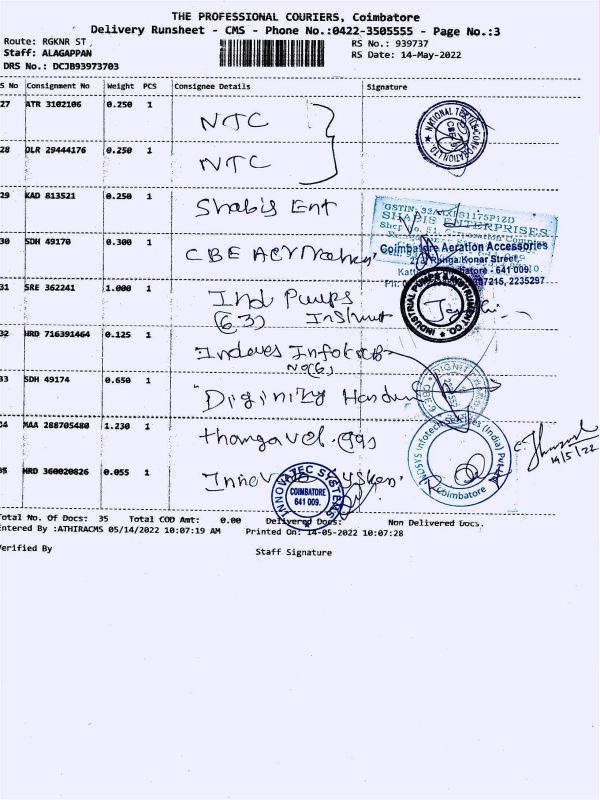 THE PROFESSIONAL COURIERS, Coimbatore
Delivery Runsheet - CMS - Phone No.:0422-3505555 - Page No.:3
Route: RGKNR ST
RS No.: 939737
Staff: ALAGAPPAN
RS Date: 14-May-2022
DRS No.: DCJB93973703
S No Consignment No Weight PCS Consignee Details Signature
27 ATR 3102106 0.250 1 NTC
NATIONAL TEXTILE CORPORATION LTD.
28 DLR 29444176 0.250 1 NTC
29 KAD 813521 0.250 1 Shabis Ent
SHABIS ENTERPRISES
30 SDH 49170 0.300 1 CBE
Coimbatore Aeration Accessories
Ranga Konar Street,
641 009.
2235297
31 SRE 362241 1.000 1 Ind Pumps
(6.3) Instrument
INDUSTRIAL PUMPS & INSTRUMENT CO.
32 HRD 716391464 0.125 1
33 SDH 49174 0.650 1
DIGNITY
34 MAA 288705480 1.230 1 thangavel.
INDSYS Infotech Services (India) Pvt Ltd
Coimbatore
14/5/22
35 HRD 360020826 0.055 1
INNOVATEC SYSTEMS
COIMBATORE
641 009.
Total No. Of Docs: 35 Total COD Amt: 0.00 Delivered Docs: Non Delivered Docs.
Entered By :ATHIRACMS 05/14/2022 10:07:19 AM Printed On: 14-05-2022 10:07:28
Verified By Staff Signature